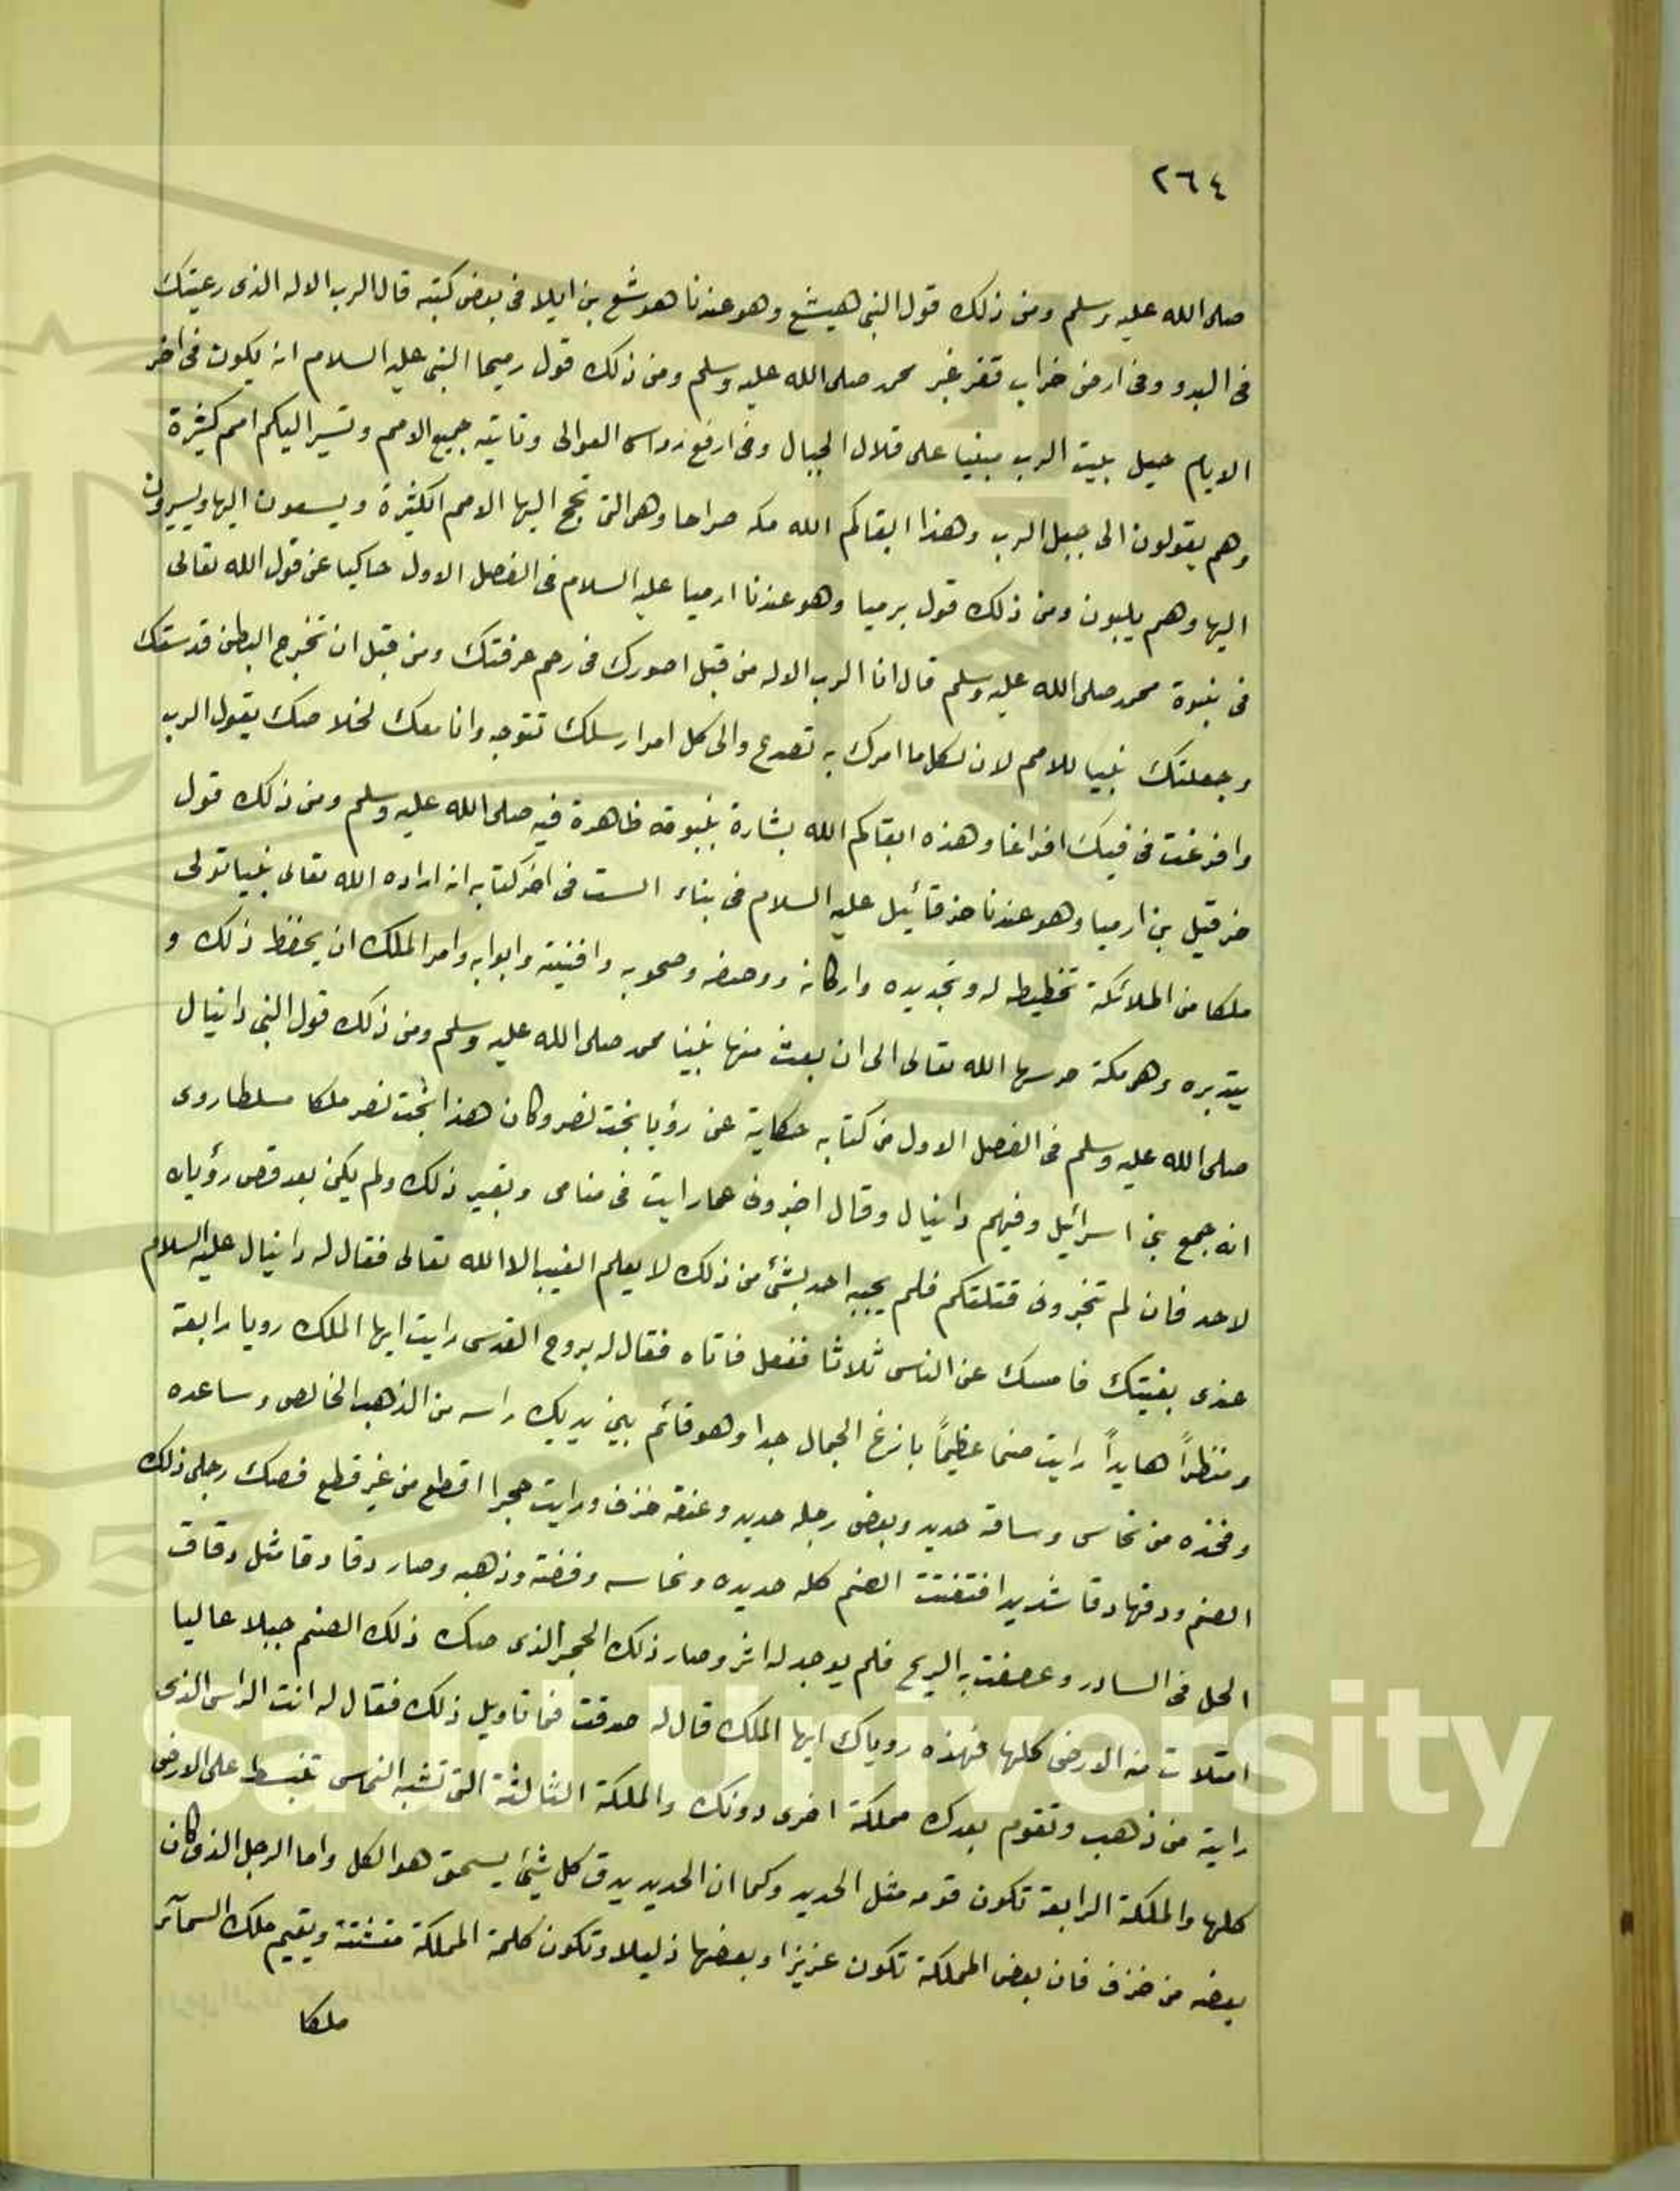 ٢٦٤
صلى الله عليه وسلم ومن ذلك قول النبى هيشع وهو عندنا هوشع بن ايلا فى بعض كتبه قال الرب الاله الذى رعيتك
فى البدو وفى ارض خراب قفر غير محمد صلى الله عليه وسلم ومن ذلك قول رميحا النبى عليه السلام انه يكون فى اخر
الايام جبل بليت الرب مبنيا على قلال الجبال وفى ارفع رؤاس العوالى وتاتيه جميع الامم وتسير اليكم امم كثيرة
وهم يقولون الى جبل الرب وهذا ابقاكم الله مكه صراحا وهى التى تحج اليها الامم الكثيرة ويسعون اليها ويسيرون
اليها وهم يلبون ومن ذلك قول يرميا وهو عندنا ارميا عليه السلام فى الفصل الاول حاكيا عن قول الله تعالى
فى نبوة محمد صلى الله عليه وسلم قال انا الرب الاله من قبل اصورك فى رحم عرفتك ومن قبل ان تخرج البطن قدستك
وجعلتك نبيا للامم لان لكل ما امرك به تصدع والى كل امر ارسلك تتوجه وانا معك لخلاصك يقول الرب
وافرغت فى فيك افراغا وهذه ابقاكم الله بشارة بنبوته ظاهرة فيه صلى الله عليه وسلم ومن ذلك قول
حزقيل بن ارميا وهو عندنا حزقائيل عليه السلام فى بناء الست فى اخر كتابه انه اراده الله تعالى نبيا تولى
ملكا من الملائكة تخطيطه له وتجديده واركانه ووصفه وصحوبه وافنيته وابوابه وامر الملك ان يحفظ ذلك و
يتدبره وهو مكة حرسها الله تعالى الى ان بعث منها نبينا محمد صلى الله عليه وسلم ومن ذلك قول النبى دانيال
صلى الله عليه وسلم فى الفصل الاول من كتابه حكاية عن رؤيا بخت نصر وكان هذا بخت نصر ملكا مسلطا روى
انه جمع بنى اسرائيل وفيهم دانيال وقال اخبرونى عما رايت فى منامى وبتعبير ذلك ولم يكن بعد قص رؤياه
لاحد فان لم تخبرونى قتلتكم فلم يجبه احد بشئ من ذلك لا يعلم الغيب الا الله تعالى فقال له دانيال عليه السلام
عندى بغيتك فامسك عن الناس ثلاثا ففعل فاتاه فقال له بروح القدس رايت ايها الملك رويا رابعة
ومنظراً هايداً رايت صنما عظيماً بازغ الجمال جدا وهو قائم بين يديك راسه من الذهب الخالص وساعده
وفخذه من نحاس وساقه حديد وبعض رجله حديد وعنقه خزف ورايت حجرا اقطع من غير قطع فصك رجلى ذلك
الصنم ودقها دقا شديدا فتفتت الصنم كله حديده ونحاسه وفضته وذهبه وصار دقا دقا مثل دقاق
الحل فى السادر وعصفت به الريح فلم يوجد له اثر وصار ذلك الحجر الذى صك ذلك الصنم جبلا عاليا
امتلات منه الارض كلها فهذه روياك ايها الملك قال له صدقت فما تاويل ذلك فقال له انت الراس الذى
رايته من ذهب وتقوم بعدك مملكة اخرى دونك والملكة الثالثة التى تشبه النحاس تنبسط على الارض
كلها والملكة الرابعة تكون قوه مثل الحديد وكما ان الحديد يدق كل شئ يسحق هو الكل واما الرجل الذى كان
بعضه من خزف فان بعض المملكة تكون عزيزا وبعضها ذليلا وتكون كلمة المملكة متشتتة ويقيم ملك السمآء
ملكا
King Saud University
1957